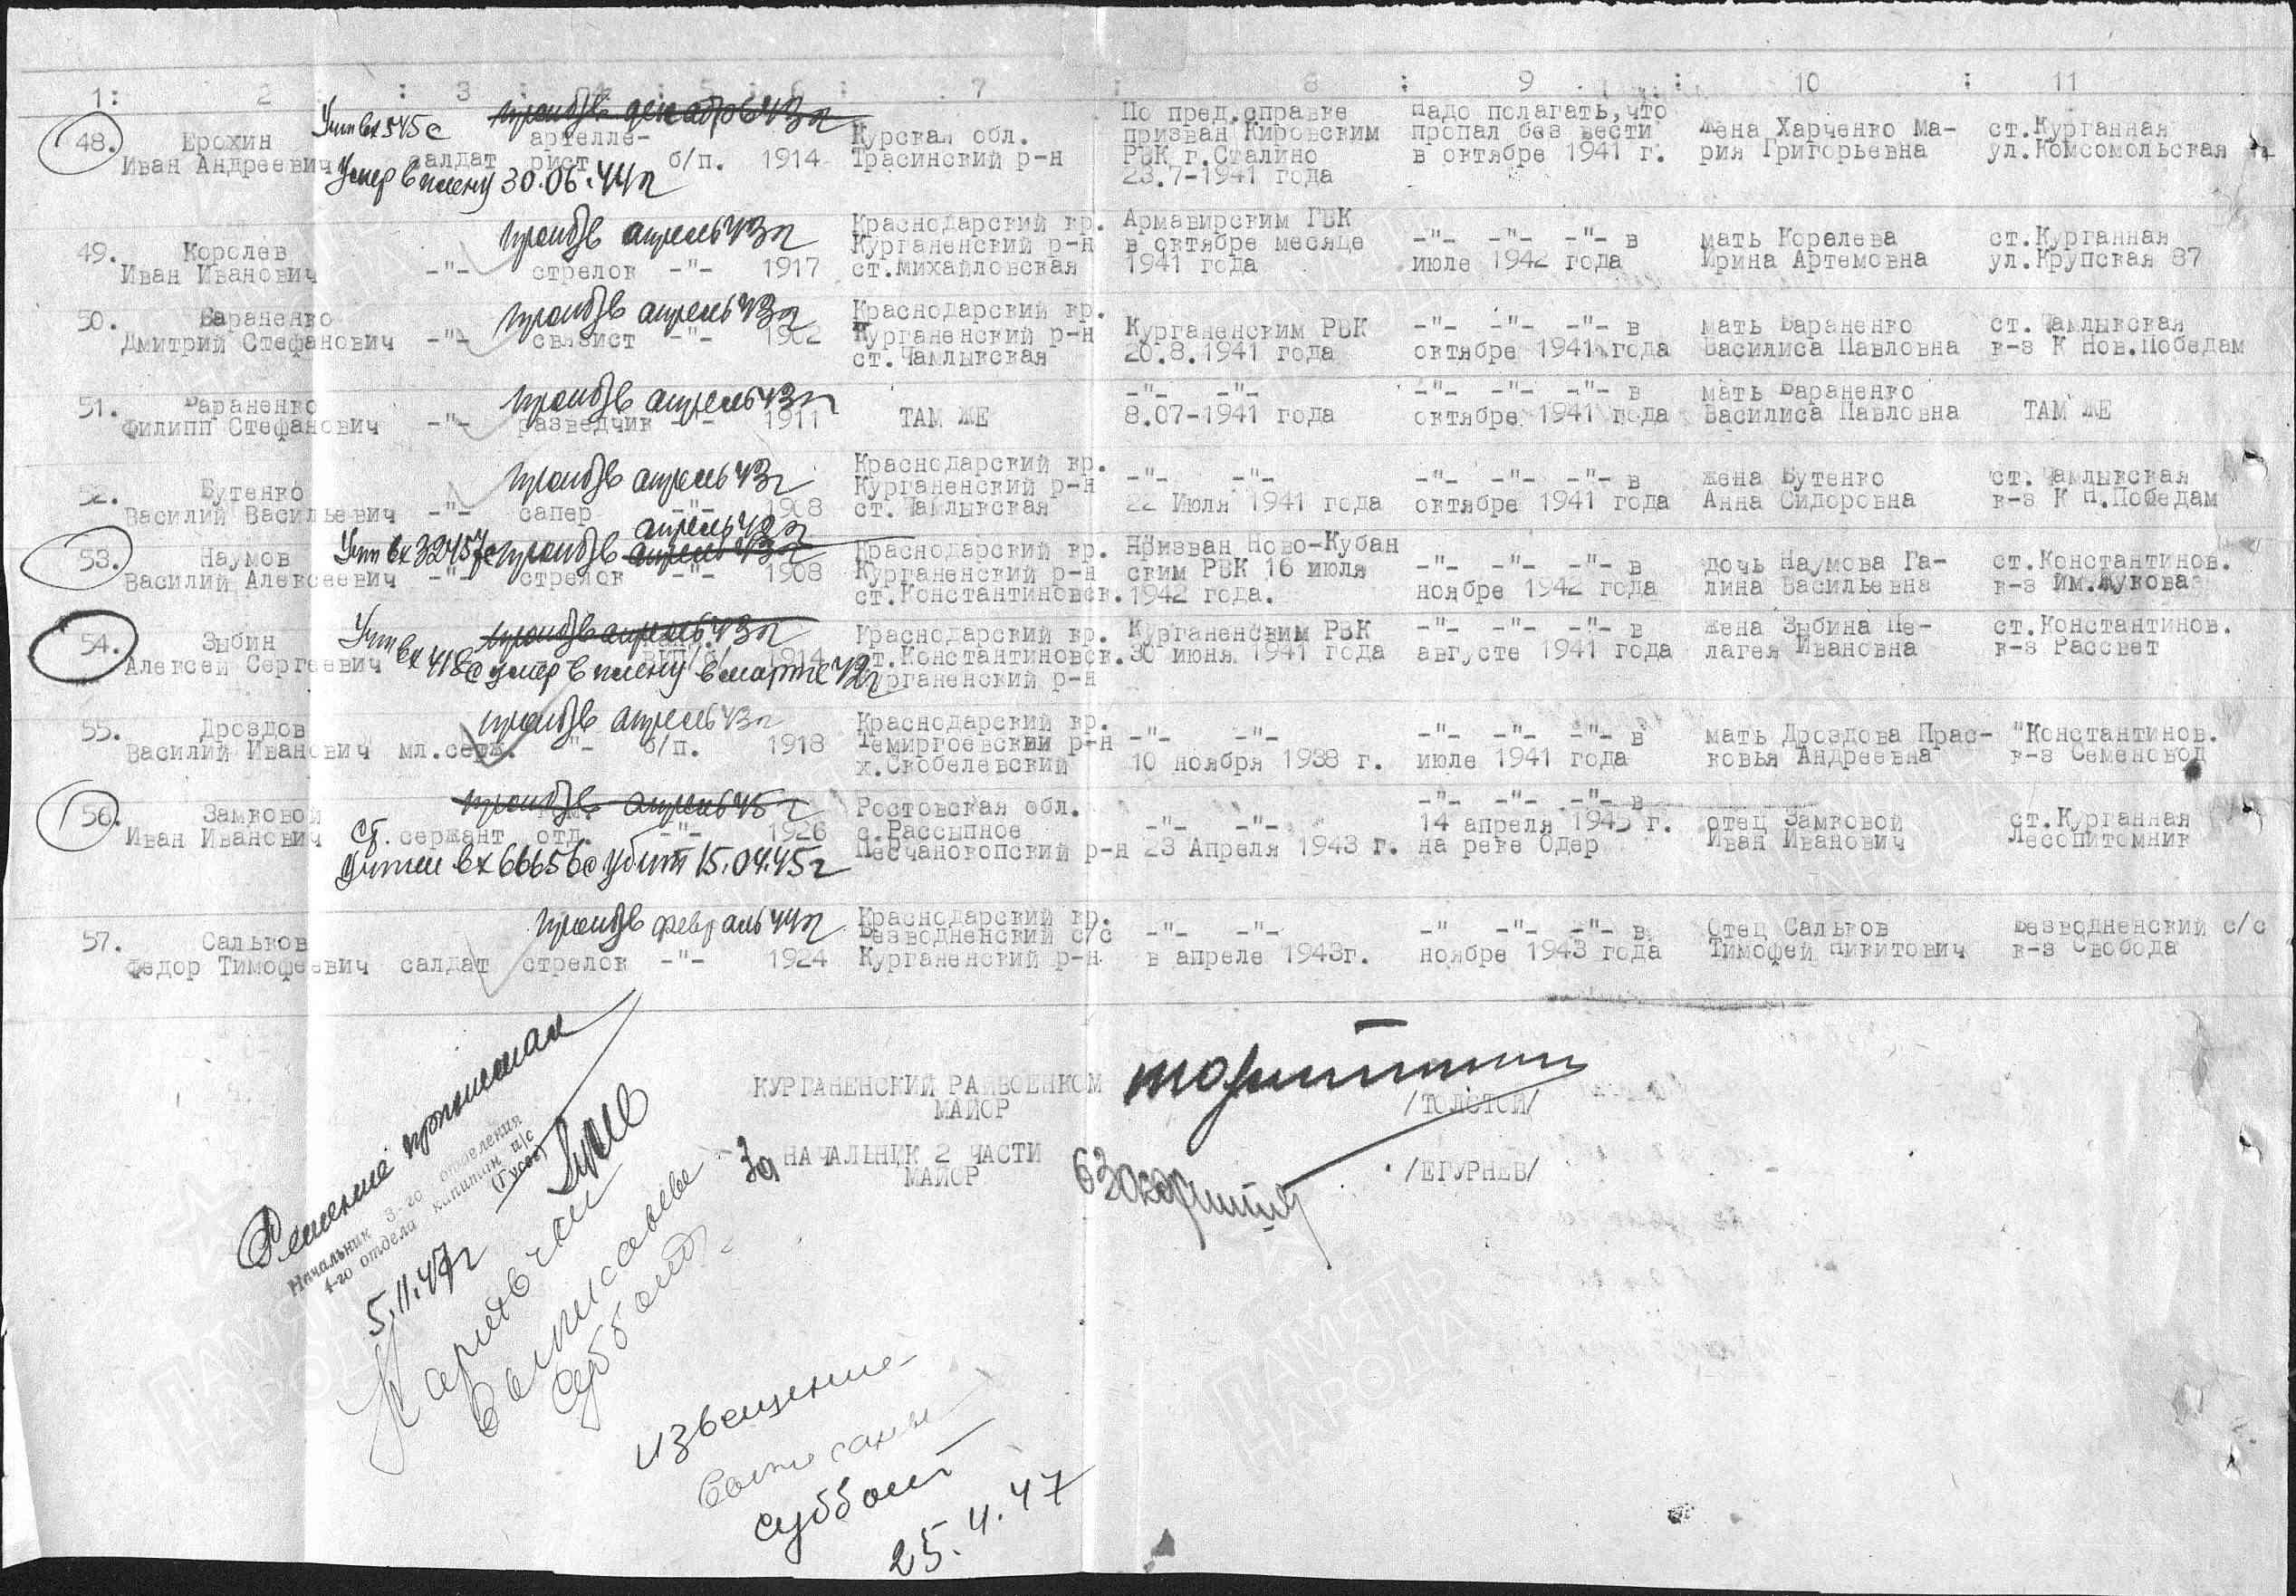 1: 2 : 3 : 4 : 5 : 6 : 7 : 8 : 9 : 10 : 11
48. Ерохин Иван Андреевич
Учтен вх 545с
произв декабрь 43г
салдат
артелле-
рист б/п. 1914
Умер в плену 30.06.44г
Курская обл.
Трасинский р-н
По пред.справке
призван Кировским
РВК г.Сталино
23.7-1941 года
надо полагать,что
пропал без вести
в октябре 1941 г.
жена Харченко Ма-
рия Григорьевна
ст.Курганная
ул.Комсомольская
49. Королев
Иван Иванович
произв апрель 43г
-"- стрелок -"- 1917
Краснодарский кр.
Курганенский р-н
ст.Михайловская
Армавирским ГВК
в октябре месяце
1941 года
-"- -"- -"- в
июле 1942 года
мать Королева
Ирина Артемовна
ст.Курганная
ул.Крупская 87
50. Бараненко
Дмитрий Стефанович
произв апрель 43г
-"- связист -"- 1902
Краснодарский кр.
Курганенский р-н
ст.Чамлыкская
Курганенским РВК
20.8.1941 года
-"- -"- -"- в
октябре 1941 года
мать Бараненко
Василиса Павловна
ст. Чамлыкская
к-з К Нов.Победам
51. Бараненко
Филипп Стефанович
произв апрель 43г
-"- разведчик -"- 1911
ТАМ ЖЕ
-"- -"-
8.07-1941 года
-"- -"- -"- в
октябре 1941 года
мать Бараненко
Василиса Павловна
ТАМ ЖЕ
52. Бутенко
Василий Васильевич
произв апрель 43г
-"- сапер -"- 1908
Краснодарский кр.
Курганенский р-н
ст. Чамлыкская
-"- -"-
22 Июля 1941 года
-"- -"- -"- в
октябре 1941 года
жена Бутенко
Анна Сидоровна
ст. Чамлыкская
к-з К Н.Победам
53. Наумов
Василий Алексеевич
апрель 43г
Учтен вх 32457с произв апрель 43г
-"- стрелок -"- 1908
Краснодарский кр.
Курганенский р-н
ст.Константиновск.
Призван Ново-Кубан
ским РВК 16 июля
1942 года.
-"- -"- -"- в
ноябре 1942 года
дочь Наумова Га-
лина Васильевна
ст.Константинов.
к-з Им.Жукова
54. Зыбин
Алексей Сергеевич
Учтен вх 418с
произв апрель 43г
1914
умер в плену в марте 42г
Краснодарский кр.
ст.Константиновск.
Курганенский р-н
Курганенским РВК
30 июня 1941 года
-"- -"- -"- в
августе 1941 года
жена Зыбина Пе-
лагея Ивановна
ст.Константинов.
к-з Рассвет
55. Дроздов
Василий Иванович
произв апрель 43г
мл.серж. -"- б/п. 1918
Краснодарский кр.
Темиргоевский р-н
х.Скобелевский
-"- -"-
10 ноября 1938 г.
-"- -"- -"- в
июле 1941 года
мать Дроздова Прас-
ковья Андреевна
"Константинов.
к-з Семеновод
56. Замковой
Иван Иванович
произв апрель 45г
ст. сержант отд. -"- 1926
Учтен вх 66656с убит 15.04.45г
Ростовская обл.
с.Рассыпное
Песчанокопский р-н
-"- -"-
23 Апреля 1943 г.
-"- -"- -"- в
14 апреля 1945 г.
на реке Одер
отец Замковой
Иван Иванович
ст.Курганная
Лесопитомник
57. Сальков
Федор Тимофеевич
произв февраль 44г
салдат стрелок -"- 1924
Краснодарский кр.
Безводненский с/с
Курганенский р-н
-"- -"-
в апреле 1943г.
-" -"- -"- в
ноябре 1943 года
Отец Сальков
Тимофей Никитович
Безводненский с/с
к-з Свобода
КУРГАНЕНСКИЙ РАЙВОЕНКОМ
МАЙОР
/ТОЛСТОЙ/
За НАЧАЛЬНИК 2 ЧАСТИ
МАЙОР
/ЕГУРНЕВ/
Решение принимал
Начальник 3-го отделения
4-го отдела капитан и/с
(Гусев)
5.11.47г
извещение
выписаны
суббот
25.4.47
ПАМЯТЬ
НАРОДА